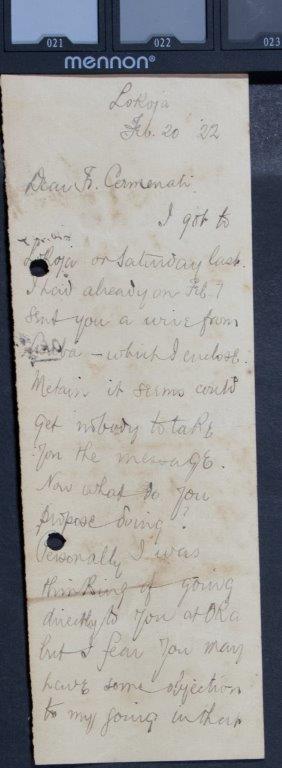 021
022
023
mennon®
Lokoja
Feb. 20 '22
Dear Fr. Cermenati.
I got to
Lokoja or Saturday last.
I had already on Feb. 7
sent you a wire from
– which I enclose.
it seems could
get nobody to take
you the message.
Now what do you
propose doing?
Personally I was
thinking of going
directly to you at Oka
but I fear you may
have some objection
to my going in that